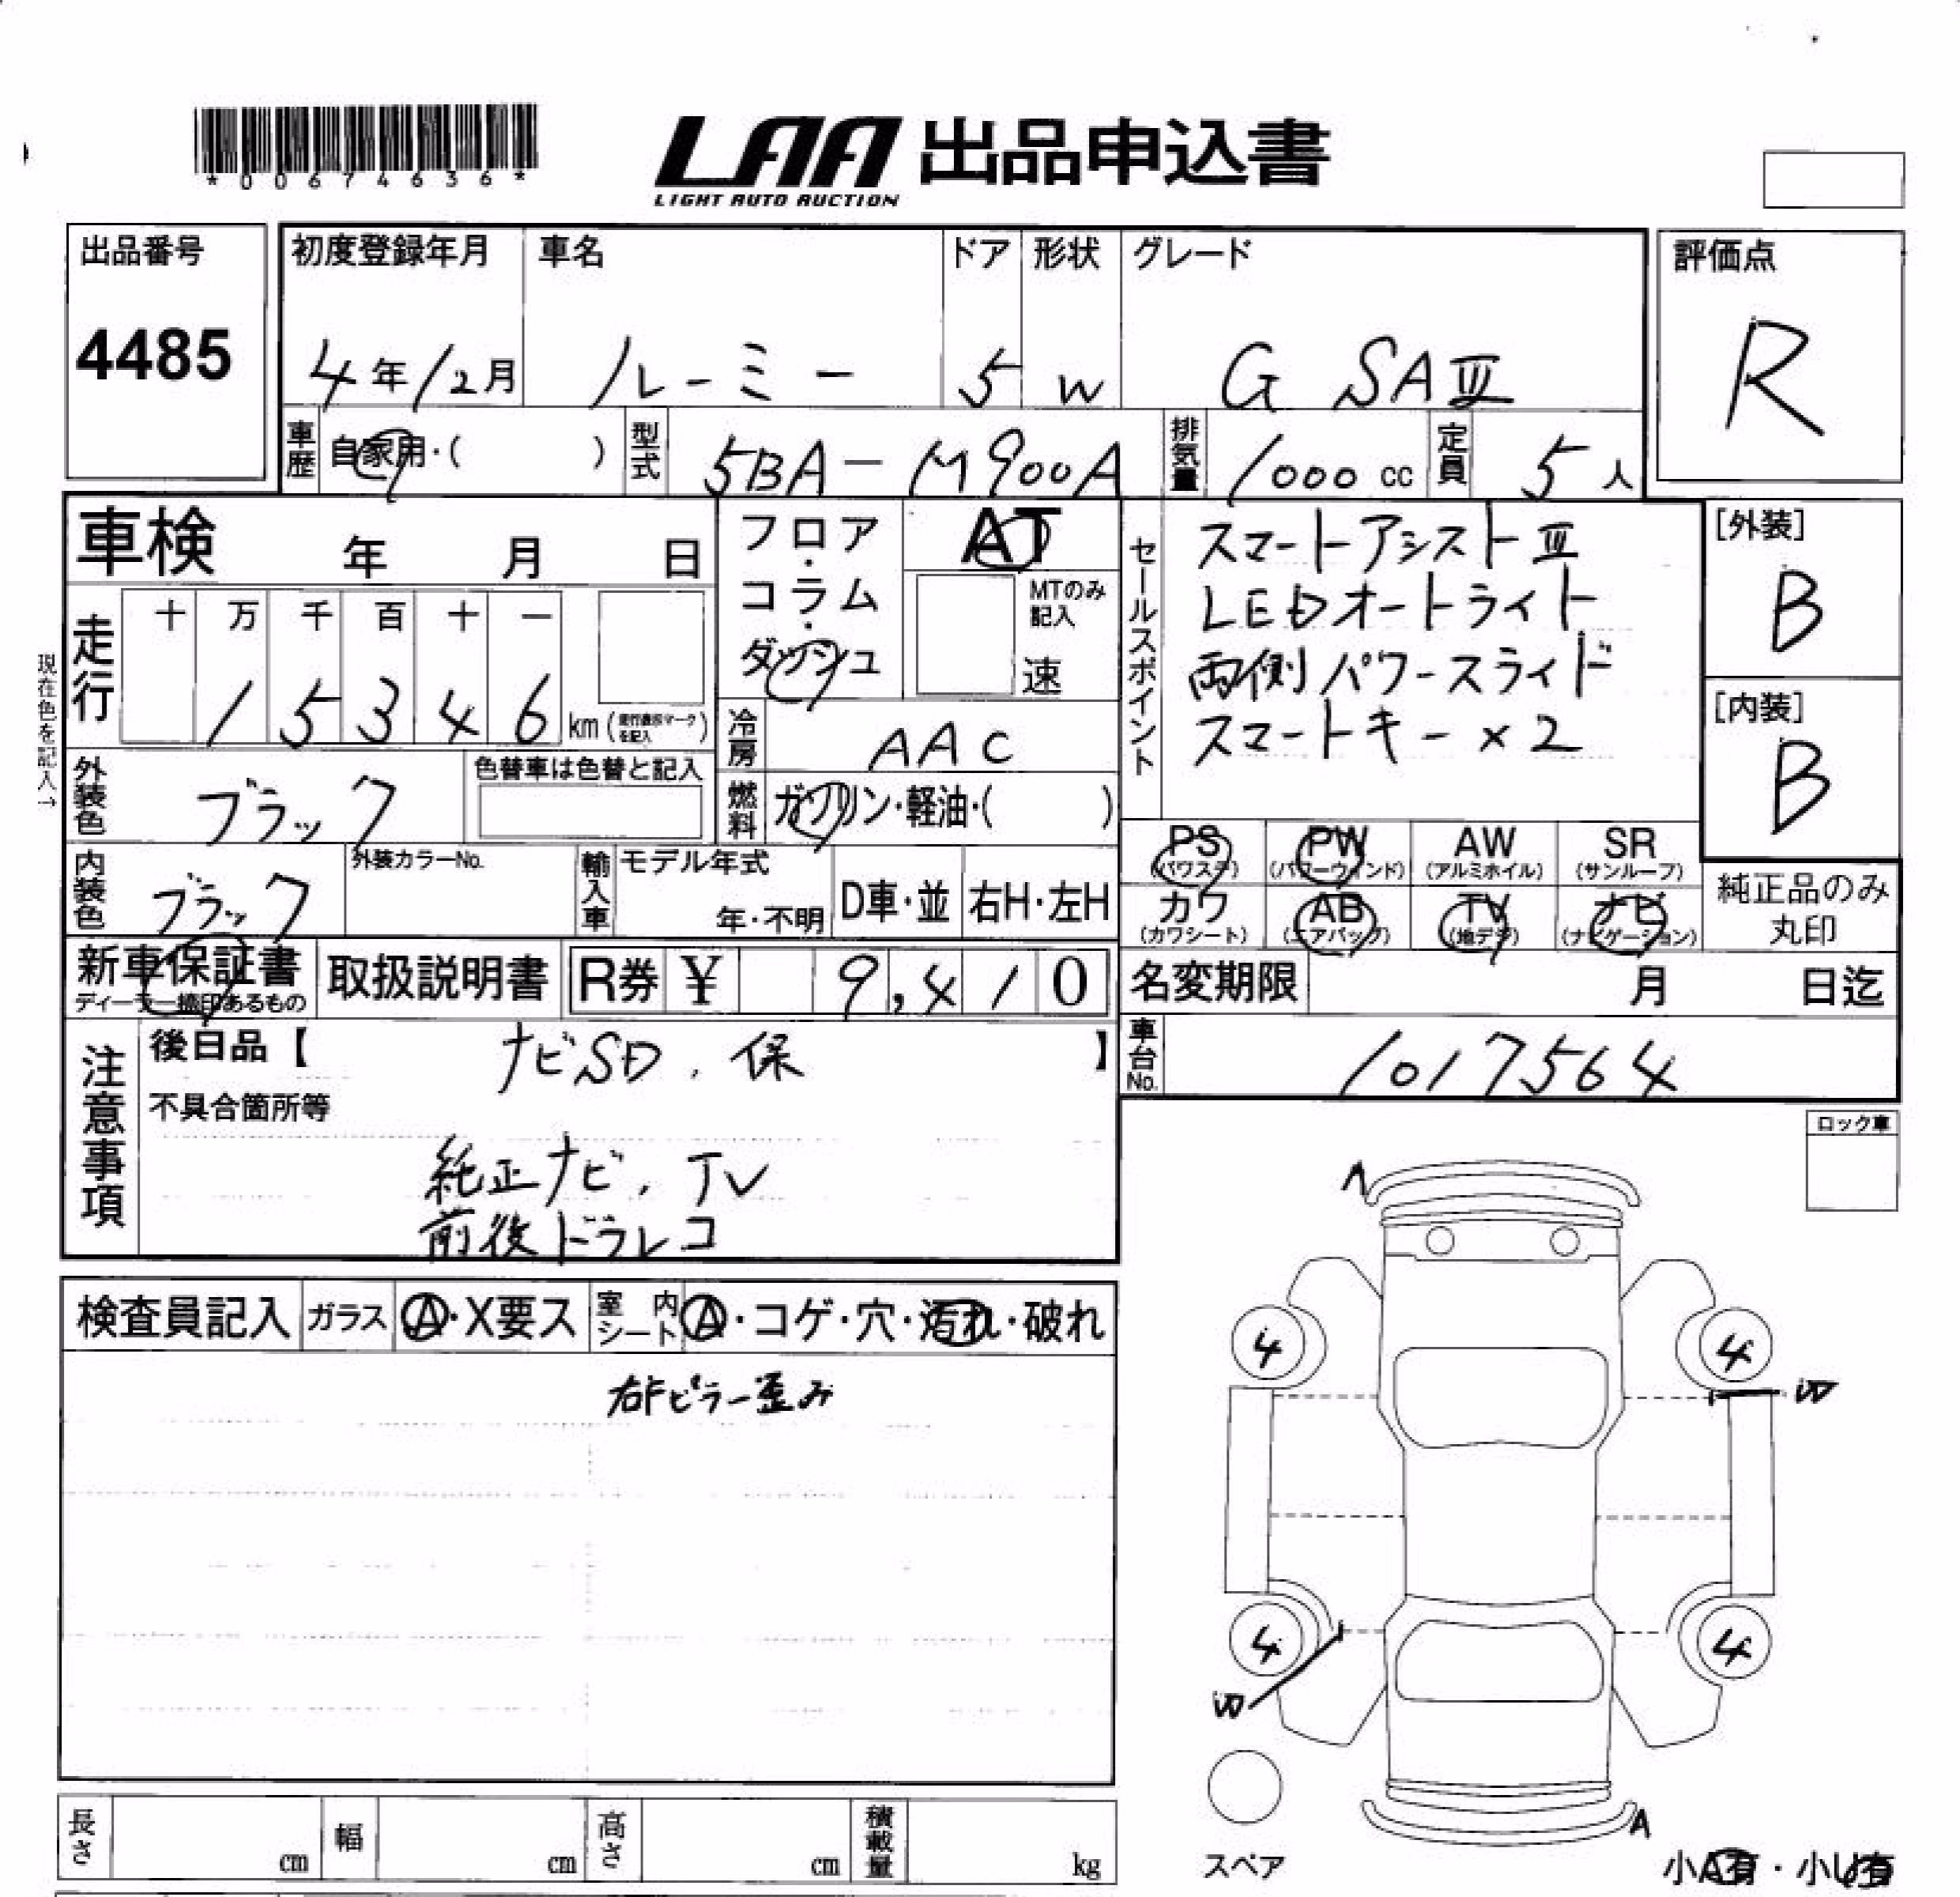 *00674636*
LAA 出品申込書
LIGHT AUTO AUCTION
出品番号
4485
初度登録年月
4年12月
車名
ルーミー
ドア
5
形状
W
グレード
G SAⅢ
評価点
R
車歴 自家用・( )
型式 5BA-M900A
排気量 1000 cc
定員 5人
車検 年 月 日
フロア・コラム・ダッシュ
AT
MTのみ記入
速
走行
十 万 千 百 十 一
1 5 3 4 6 km
現在色を記入→
冷房 AAC
燃料 ガソリン・軽油・( )
外装色 ブラック
色替車は色替と記入
内装色 ブラック
外装カラーNo.
輸入車 モデル年式
年・不明
D車・並 右H・左H
セールスポイント
スマートアシストⅢ
LEDオートライト
両側パワースライド
スマートキー×2
[外装]
B
[内装]
B
PS (パワステ)
PW (パワーウインド)
AW (アルミホイル)
SR (サンルーフ)
カワ (カワシート)
AB (エアバック)
TV (地デジ)
ナビ (ナビゲーション)
純正品のみ
丸印
新車保証書
ディーラー捺印あるもの
取扱説明書
R券 ¥ 9,410
名変期限 月 日迄
車台No. 1017564
注意事項
後日品【 ナビSD、保 】
不具合箇所等
純正ナビ、TV
前後ドラレコ
ロック車
検査員記入 ガラス A・X要ス 室内シート A・コゲ・穴・汚れ・破れ
右Fピラー歪み
A
4
4
W
4
4
W
A
スペア
小A有・小U有
長さ cm 幅 cm 高さ cm 積載量 kg